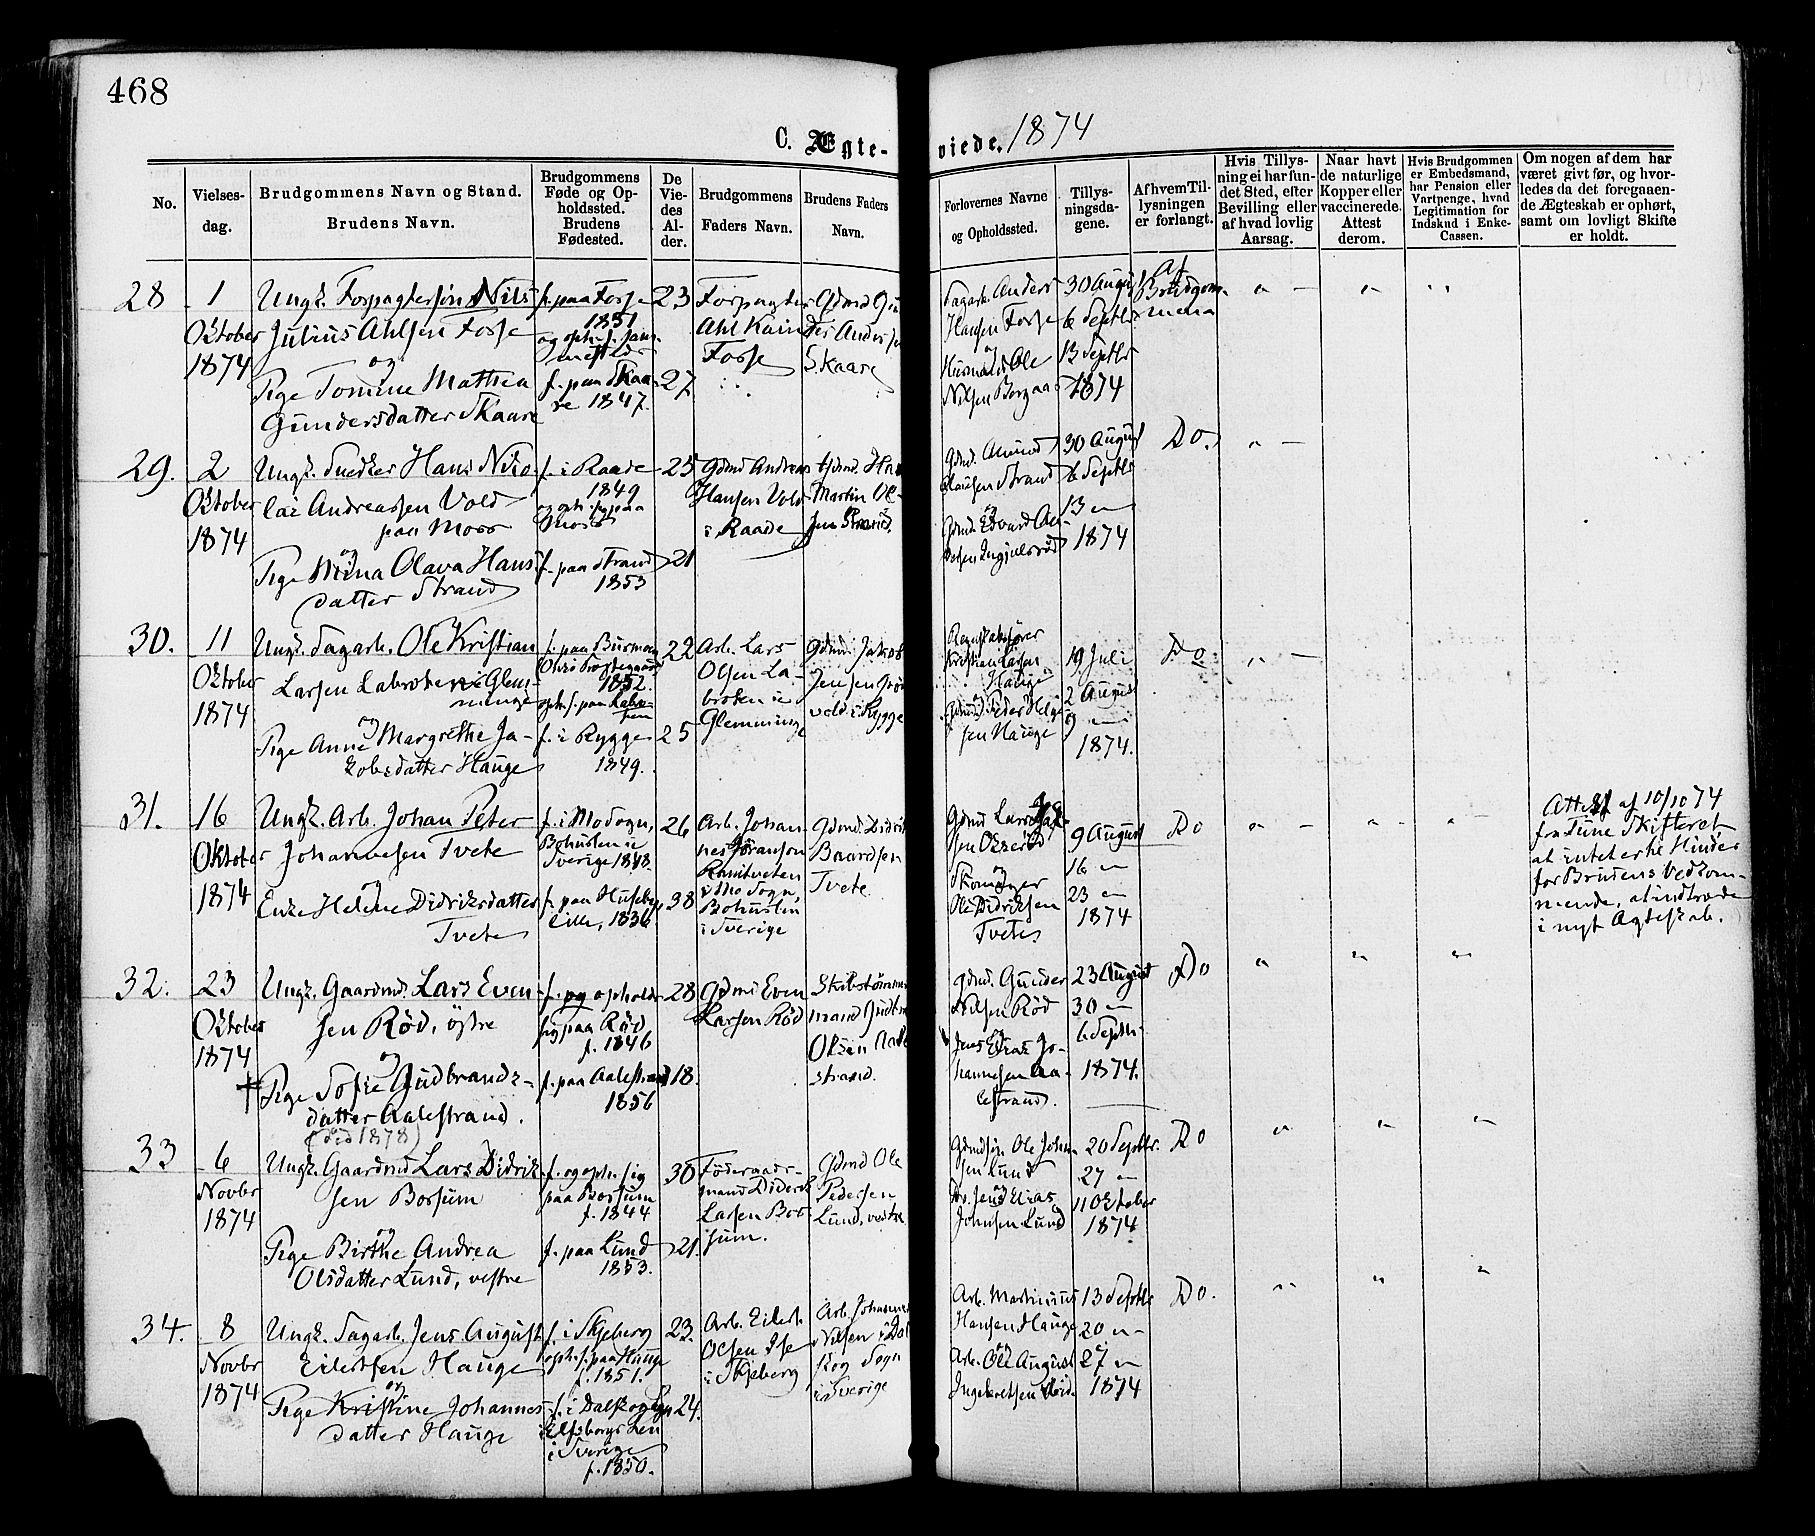 468
C. Ægteviede. 1874
No.
Vielsesdag.
Brudgommens Navn og Stand.
Brudens Navn.
Brudgommens
Føde og Op-
holdssted.
Brudens
Fødested.
De
Vie-
des
Al-
der.
Brudgommens
Faders Navn.
Brudens Faders
Navn.
Forlovernes Navne
og Opholdssted.
Tillys-
ningsda-
gene.
Af hvem Til-
lysningen
er forlangt.
Hvis Tillys-
ning ei har fun-
det Sted, efter
Bevilling eller
af hvad lovlig
Aarsag.
Naar havt
de naturlige
Kopper eller
vaccinerede.
Attest
derom.
Hvis Brudgommen
er Embedsmand,
har Pension eller
Vartpenge, hvad
Legitimation for
Indskud i Enke-
Cassen.
Om nogen af dem har
været givt før, og hvor-
ledes da det foregaaen-
de Ægteskab er ophørt,
samt om lovligt Skifte
er holdt.
28
1
Oktober
1874
Ungk. Forpagtersøn Nils
Julius Ahlsen Fosse
og
Pige Tomine Mathea
Gundersdatter Skaare
f. paa Fosse
1851
f. paa Skaa-
re 1847.
23
27
Forpagter
Ahl
Fosse
Gdmd Gun
der Anders
Skaare
Dagarb. Anders
Hansen Fosse
og
Ole
Nilsen
30 August
6 Septbr
13 Septbr
1874
Af
Brudgom-
mene
29.
2
Oktober
1874
Ungk. Snedker Hans Niko-
lai Andreassen Vold
paa Moss
og
Pige Mina Olava Hans
datter Strand
f. i Raade
1849
og oph. sig paa
Moss
f. paa Strand
1853
25
21
Gdmd Andreas
Hansen Vold
i Raade
Gdmd. Han
Martin Ol-
sen Strand.
Gdmd. Amund
Clausen Strand
og
Gdmd. Edvard
30 August
6 Septbr
13 "
1874
Do.
30.
11
Oktober
1874
Ungk. Dagarb. Ole Kristian
Larsen Labroten i Glem-
minge
og
Pige Anne Margrethe Ja-
kobsdatter Hauge
1852.
f. i Rygge
1849.
22
25
Arb. Lars
Olsen La-
broten i
Glemminge
Gdmd. Jakob
Jensen
vold i Rygge
Regnskabsfører
Kristian Larsen
Hauge
og
Gdmd. Peder Helge
sen Hauge
19 Juli
2 August
9 "
1874.
Do
31.
16
Oktober
1874
Ungk. Arb. Johan Peter
Johannesen Tvete
og
Enke Helene Didriksdatter
Tvete
f. i Mo Sogn,
Bohuslen i
Sverige 1848.
f. paa Huseby
lille, 1836
26
38
Arb. Johan-
nes Jøransen
i Mo Sogn
Bohuslen
i Sverige
Gdmd. Didrik
Baardsen
Tvete.
Gdmd Lars
og
Skomager
Ole Didriksen
Tvete
9 August
16 "
23 "
1874
Do
Attest af 10/10 74
fra Tune Skifteret
at intet er til Hinder
for Brudens Vedkom-
mende, at indtræde
i nyt Ægteskab.
32.
23
Oktober
1874
Ungk. Gaardmd. Lars Even-
sen Rød, østre
og
† Pige Sofie Gudbrands-
datter Aalestrand.
(død 1878)
f. og opholdr
sig paa Rød
f. 1846
f. paa Aalestrand
1856
28
18.
Gdmd Even
Larsen Rød
Skibstømmer
mand Gudbr
Olsen Aale
strand.
Gdmd. Gunder
Nilsen Rød
Jens Elias Jo-
hannesen Aa-
lestrand.
23 August
30 "
6 Septbr.
1874.
Do
33
6
Novbr
1874
Ungk. Gaardmd Lars Didrik-
sen Borsum
og
Pige Birthe Andrea
Olsdatter Lund, vestre
f. og oph. sig
paa Borsum
f. 1844
f. paa Lund
1853.
30
21.
Födergaards-
mand Diderik
Larsen Bor
sum.
Gdmd Ole
Pedersen
Lund, vestre
Gdmdsøn Ole John-
sen Lund
og
Do. Jens Elias
Johnsen Lund
20 Septbr.
27 "
11 Oktober
1874
Do
34.
8
Novbr
1874
Ungk. Dagarb. Jens August
Eilertsen Hauge
og
Pige Kristine Johannes-
datter Hauge
f. i Skjeberg
oph. s. paa Hauge
f. 1851.
f. i Dalskog Sgn
i Elfsborgs Len
i Sverige
f. 1850.
23.
24.
Arb. Eilert
Olsen Ise
i Skjeberg
Arb. Johannes
Nilsen i Dal
skog Sogn
i Sverige
Arb. Martinius
Hansen Hauge
og
Arb. Ole August
Ingebretsen
13 Septbr
20 "
27 "
1874
Do.